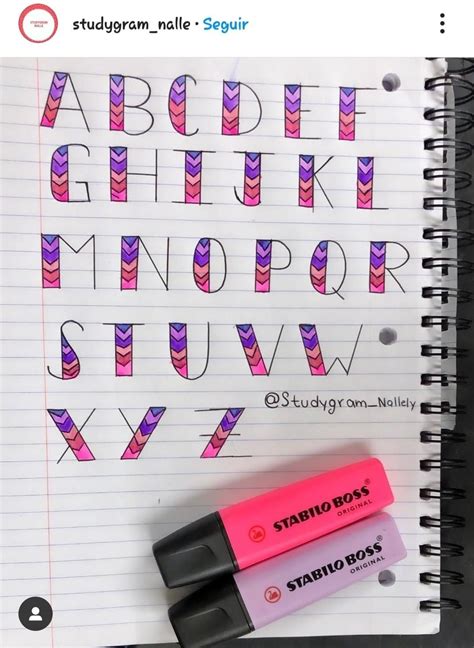 studygram_nalle • Seguir
A B C D E F
G H I J K L
M N O P Q R
S T U V W
@Studygram_Nallely
X Y Z
STABILO BOSS
ORIGINAL
STABILO BOSS
ORIGINAL